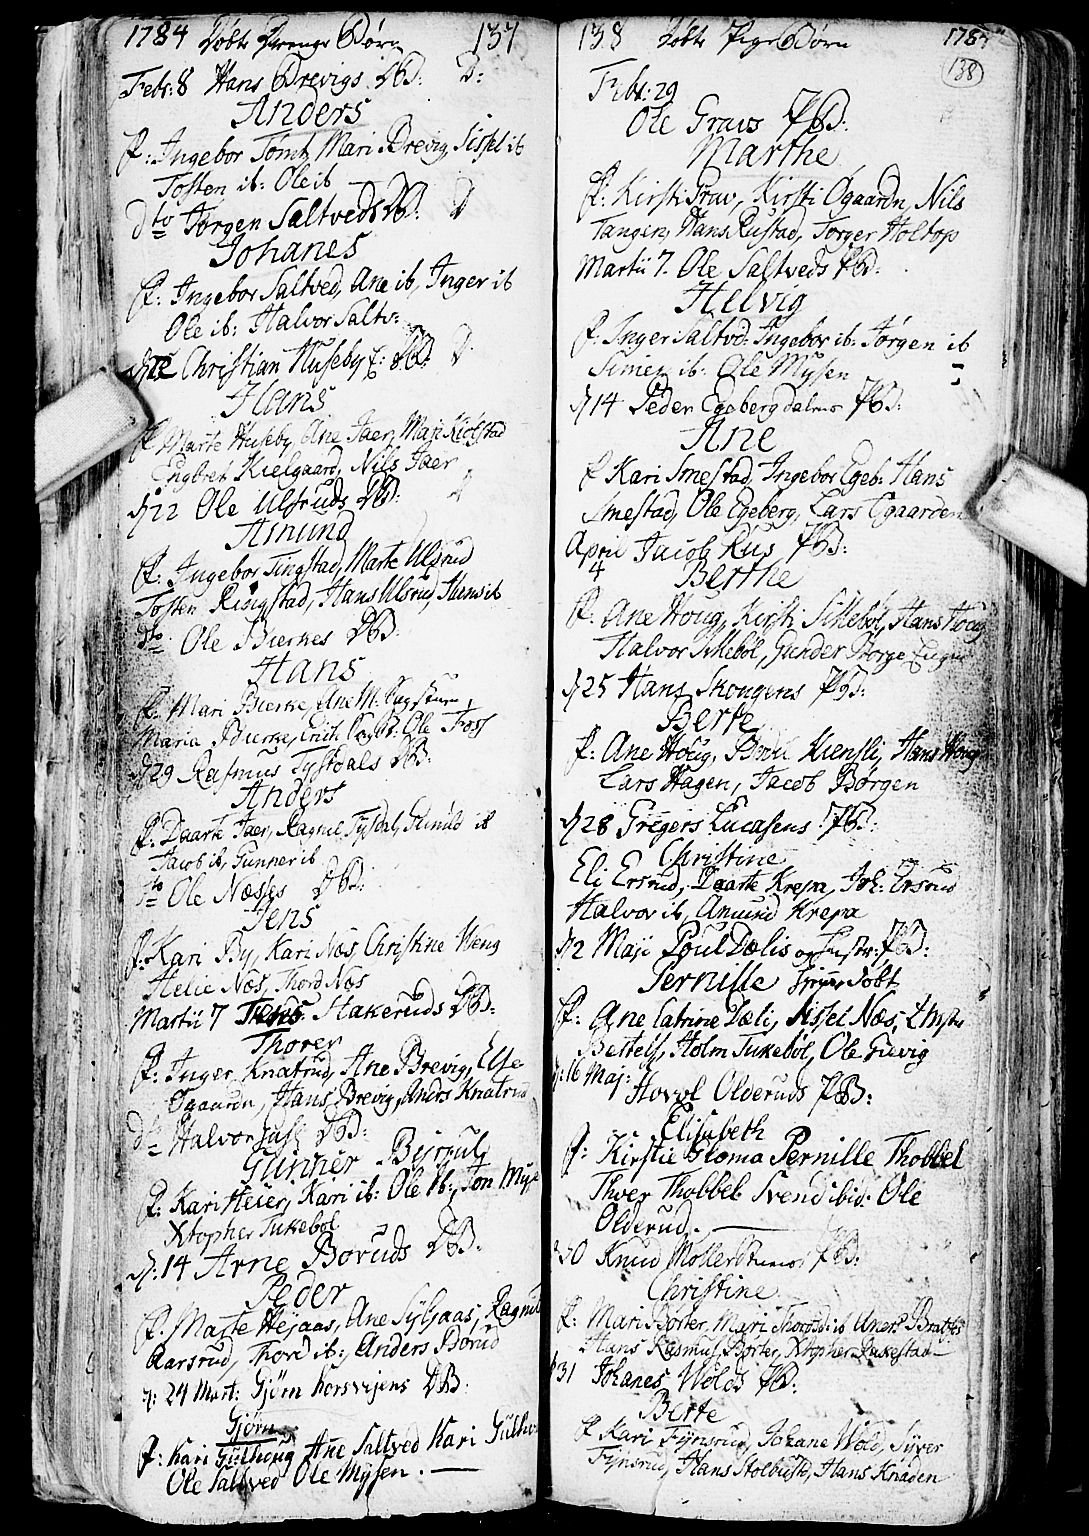 1784 Døbte Drenge Børn 137
Febr: 8 Hans Brevigs DB: D:
Anders
f: Ingebor Tomt, Mari Brevig, Sissel ib
Tosten ib: Ole ib
dto Jørgen Saltveds DB: D
Johanes
f: Ingebor Saltved, Ane ib, Inger ib
Ole ib: Halvor Saltv:
Christian Huseby E: DB: D
Hans
f Marte Huseby, Ane Jaer, Maji Kiølstad
Engbret Kielgaard, Nils Jaer
d 22 Ole Ulsruds DB:
Amund
f: Ingebor Tingstad, Marte Ulsrud
Tosten Ringstad, Hans Ulsrud, Hans ib
dto Ole Bierkes DB:
Hans
f: Mari Bierke, Ane M:
Maria Bierke, Erich Ole Foss
d 29 Rasmus Tysdals DB:
Anders
f: Daarte Jaer, Ragnil Tysdal, Gunild ib
Jacob ib, Gunner ib
dto Ole Næsses DB:
Jens
f: Kari By, Kari Næs, Christine Weng
Helie Næs, Thord Næs
Martii 7 Hakeruds DB:
Thorer
f: Inger Knatrud, Ane Brevig, Else
Øgaarden, Hans Brevig, Anders Knatrud
dto Halvor DB:
Gunner Bjerrul
f: Kari Heier, Kari ib: Ole ib:, Jon Myse
Xtopher Tukebøl
d: 14 Arne Boruds DB:
Peder
f. Marte Højaas, Ane Syljaas, Ragnil
Aarsrud, Thord ib:, Anders Borud
d: 24 Mart: Gjørn Korsvejens DB:
Gjørn
f: Kari Gulhoug Ane Saltved Kari Gulhou
Ole Saltved Ole Mysen. —
138 Døbte Pige Børn 1784
138
Febr: 29
Ole Graus PB:
Marthe
f: Kirsti Grav, Kirsti Øgaardn, Nils
Tangen, Hans Rustad, Torger Holtop
Martii 7. Ole Saltveds PB:
Helvig
f: Inger Saltvd: Ingebor ib: Jørgen ib
Simen ib: Ole Mysen
d 14 Peder Egebergdalens PB:
Ane
f Kari Smestad, Ingebor Egeb: Hans
Smestad, Ole Egeberg, Lars Øgaarden
April 4 Jacob Rus PB:
Berthe
f: Ane Houg, Kirsti Sikkebøl, Hans Houg
Halvor Sikkebøl, Gunder Borge
d 25 Hans Skougens PB:
Berte
f: Ane Houg, Kiensli, Hans Houg
Lars Hagen, Jacob Børgen
d 28 Gregers Lucasens PB:
Christine
Eli Ersrud, Daarte Krepa, Joh: Ersrud
Halvor ib, Amund Krepa
d 2 Maji Poul Dælis og Hustr: PB:
Pernille døbt
f: Ane Catrine Dæli, Sissel Næs,
Bertels, Holm Tukebøl, Ole Guvig
d: 16 Maj: Hovel Olderuds PB:
Elisabeth
f: Kirstie Gloma Pernille Thobbel
Thoer Thobbel Svend ibid: Ole
Olderud. —
d 30 Knud Møllerstuens PB:
Christine
f: Mari Børter, Mari ib Anders
Hans Rasmus Børter, Xtopher
d 31 Johanes Wolds PB:
Berte
f Kari Fynsrud, Johane Wold, Syver
Fynsrud, Hans Stolbusk, Hans Knaden